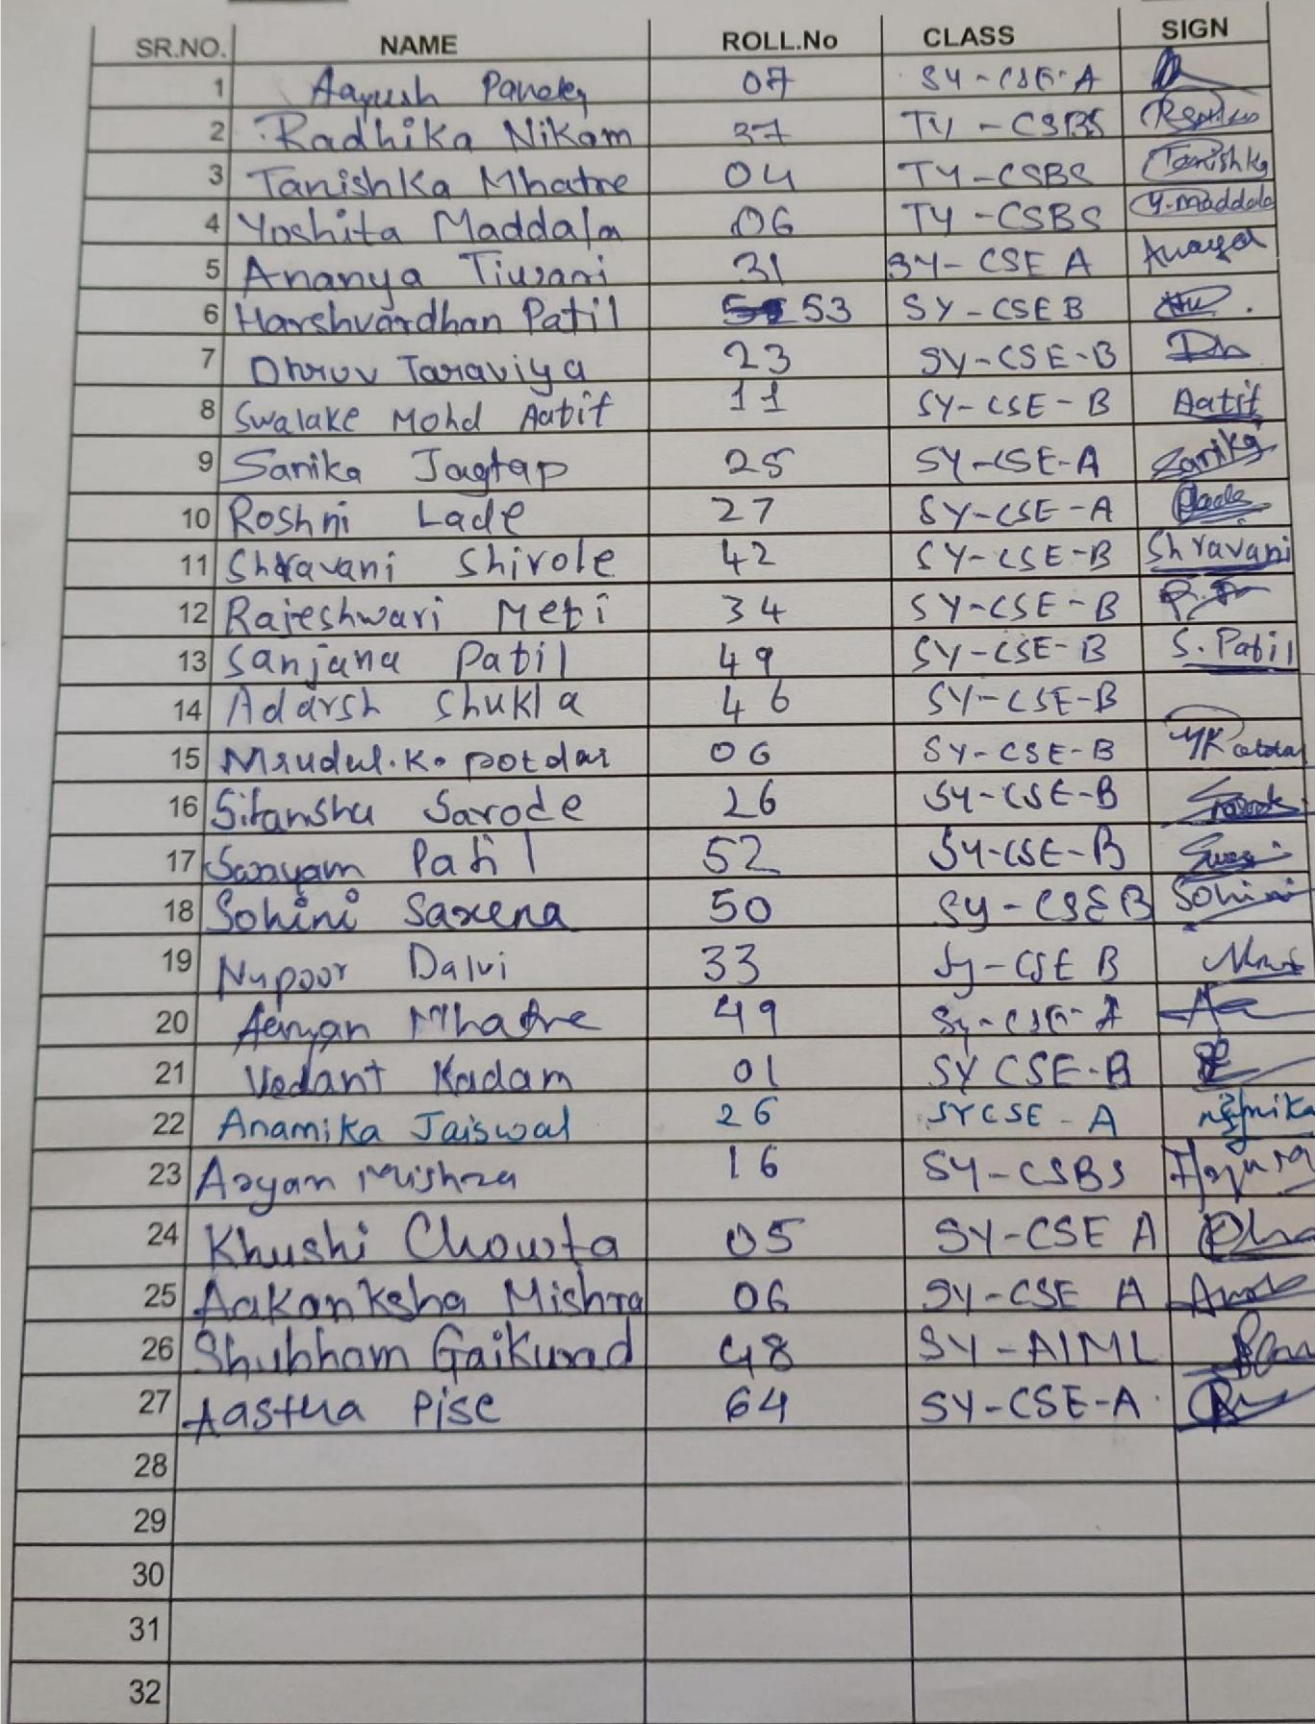 SR.NO. NAME ROLL.No CLASS SIGN
1 Aayush Pandey 07 SY-CSE-A
2 Radhika Nikam 37 TY-CSBS
3 Tanishka Mhatre 04 TY-CSBS Tanishka
4 Yoshita Maddala 06 TY-CSBS Y.Maddala
5 Ananya Tiwari 31 SY-CSE A
6 Harshvardhan Patil 53 SY-CSE B
7 Dhruv Taraviya 23 SY-CSE-B Dh
8 Swalake Mohd Aatif 11 SY-CSE-B Aatif
9 Sanika Jagtap 25 SY-CSE-A Sanika
10 Roshni Lade 27 SY-CSE-A
11 Shravani Shirole 42 SY-CSE-B Shravani
12 Rajeshwari Meti 34 SY-CSE-B
13 Sanjana Patil 49 SY-CSE-B S. Patil
14 Adarsh Shukla 46 SY-CSE-B
15 Mrudul.K. potdar 06 SY-CSE-B
16 Sitanshu Sarode 26 SY-CSE-B
17 Swayam Patil 52 SY-CSE-B
18 Sohini Saxena 50 SY-CSE B Sohini
19 Nupoor Dalvi 33 Sy-CSE B
20 Aaryan Mhatre 49 Sy-CSE-A
21 Vedant Kadam 01 SY CSE-B
22 Anamika Jaiswal 26 SYCSE-A
23 Aryan Mishra 16 SY-CSBS
24 Khushi Chowta 05 SY-CSE A
25 Aakanksha Mishra 06 SY-CSE A
26 Shubham Gaikwad 48 SY-AIML
27 Aastha Pise 64 SY-CSE-A
28
29
30
31
32